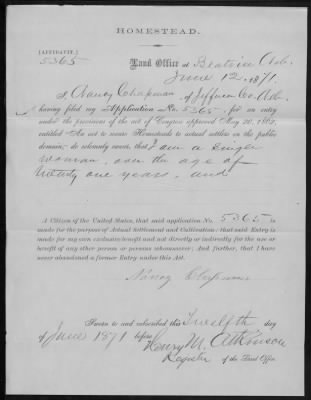 HOMESTEAD.
[AFFIDAVIT.]
5365
Land Office at Beatrice Neb.
June 12, 1871.
I, Nancy Chapman of Jefferson Co. Neb.
having filed my Application No. 5365, for an entry
under the provisions of the act of Congress approved May 20, 1862,
entitled An act to secure Homesteads to actual settlers on the public
domain, do solemnly swear, that I am a Singer
woman, over the age of
twenty one years, and
A Citizen of the United States, that said application No. 5365 is
made for the purpose of Actual Settlement and Cultivation; that said Entry is
made for my own exclusive benefit and not directly or indirectly for the use or
benefit of any other person or persons whomsoever; And further, that I have
never abandoned a former Entry under this Act.
Nancy Chapman
Sworn to and subscribed this Twelfth day
of June 1871 before
Henry M. Atkinson
Register of the Land Office.